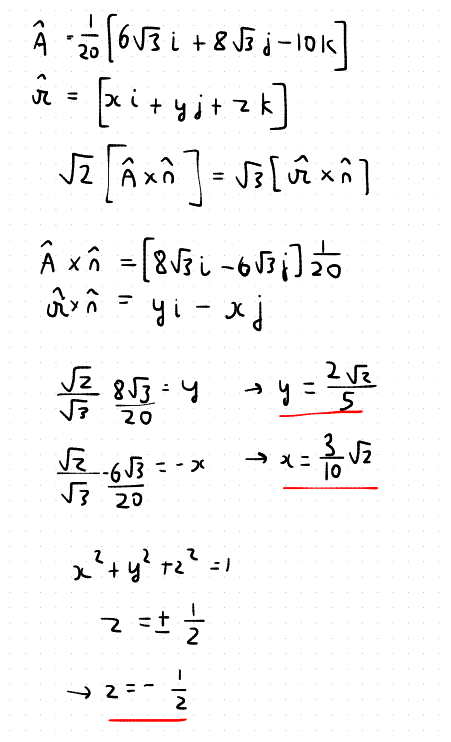 Â = 1/20 [6√3 i + 8√3 j - 10k]
r̂ = [x i + y j + z k]
√2 [Â × n̂] = √3 [r̂ × n̂]
Â × n̂ = [8√3 i - 6√3 j] 1/20
r̂ × n̂ = y i - x j
√2/√3 8√3/20 = y → y = 2√2/5
√2/√3 -6√3/20 = -x → x = 3/10 √2
x² + y² + z² = 1
z = ± 1/2
→ z = - 1/2